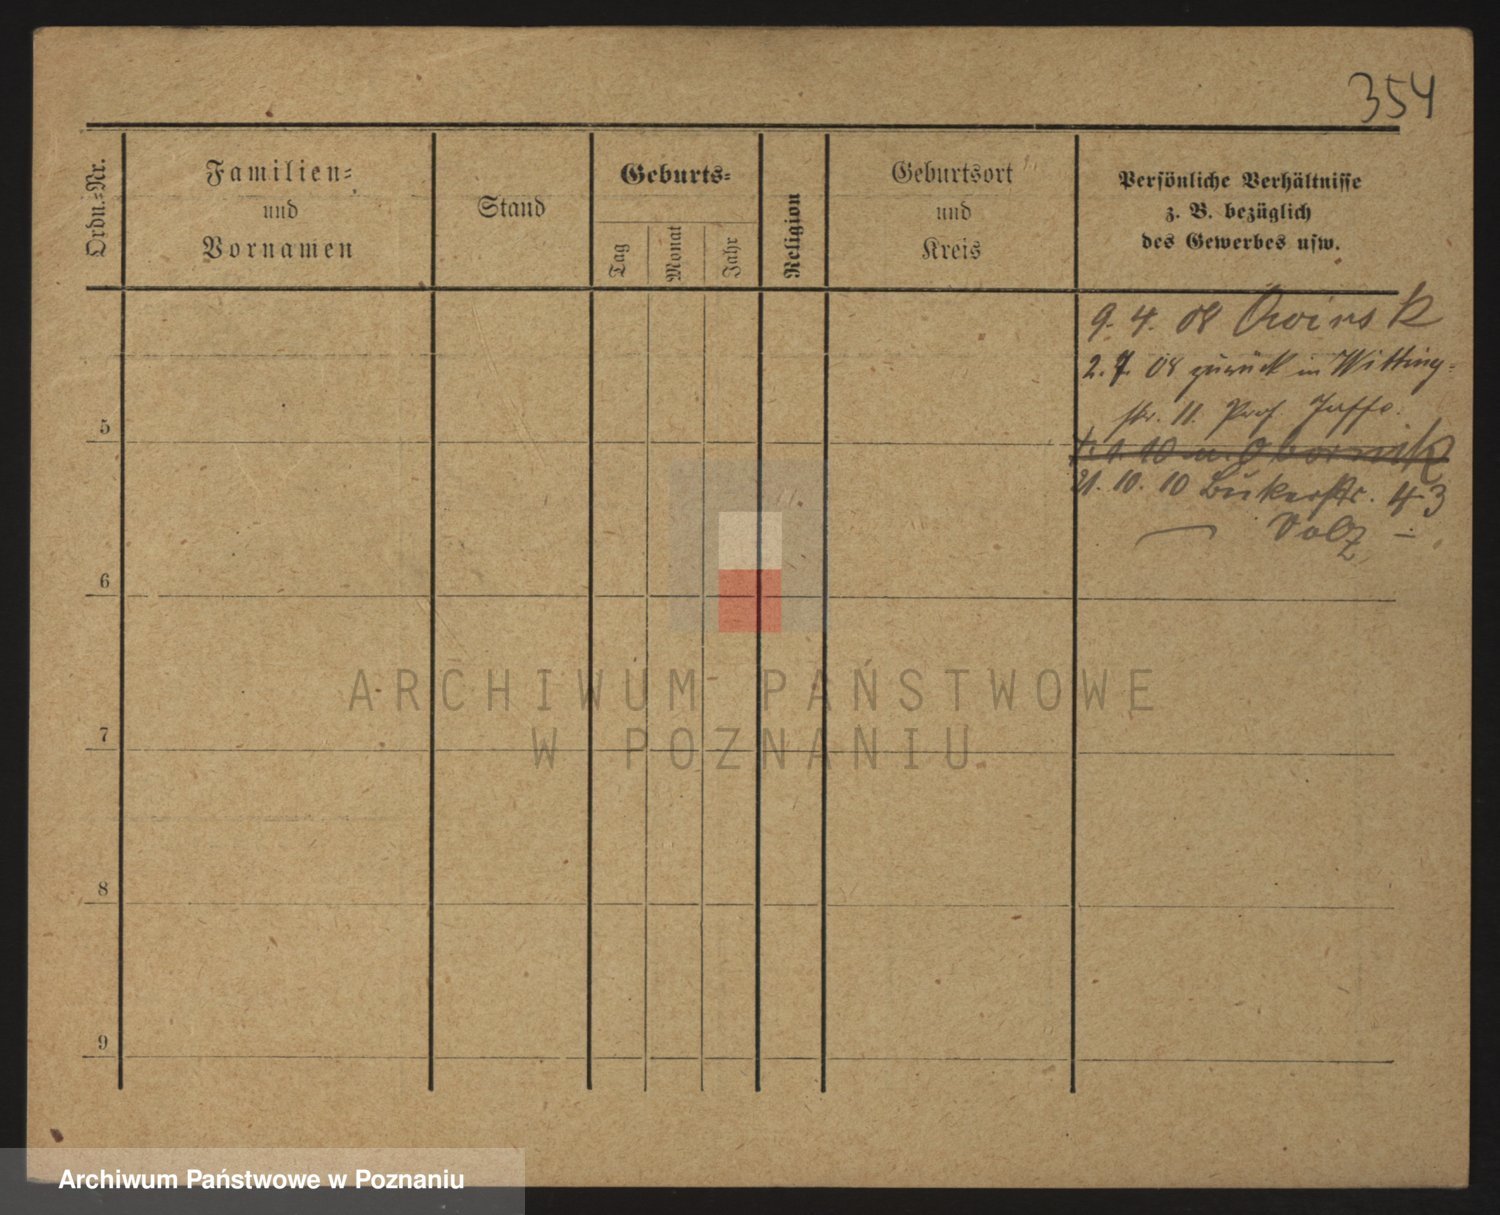 354
Ordn.-Nr.
Familien-
und
Vornamen
Stand
Geburts-
Tag
Monat
Jahr
Religion
Geburtsort
und
Kreis
Persönliche Verhältnisse
z. B. bezüglich
des Gewerbes usw.
9. 4. 08 Owinsk
2. 7. 08 zurück in Witting-
str. 11. Prof. Jaffe.
5
1. 10 n. Obornik
21. 10. 10 Bukerstr. 43
Volz -
6
ARCHIWUM PAŃSTWOWE
W POZNANIU
7
8
9
Archiwum Państwowe w Poznaniu